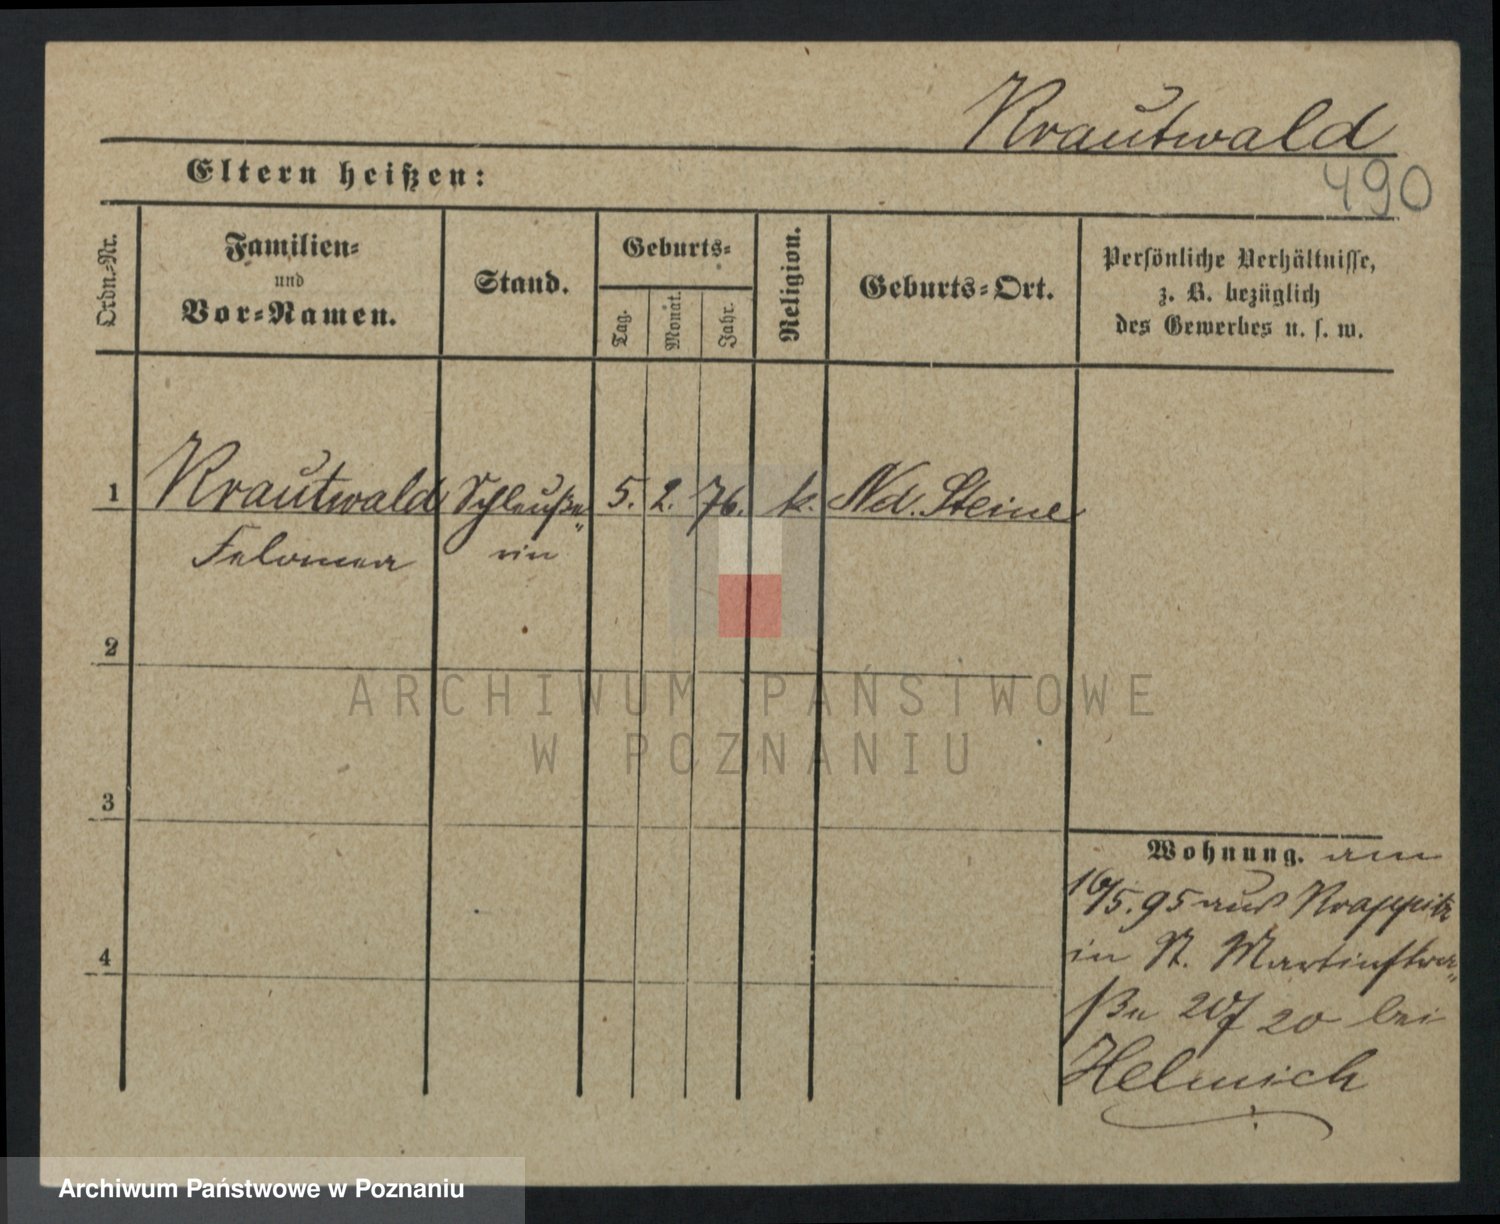 Krautwald
490
Eltern heißen:
Ordn.-Nr.
Familien-
und
Vor-Namen.
Stand.
Geburts-
Tag.
Monat.
Jahr.
Religion.
Geburts-Ort.
Persönliche Verhältnisse,
z. B. bezüglich
des Gewerbes u. s. w.
1 Krautwald Schleuße„ 5. 2. 76. k. Nd. Steine
rin
2
3
4
Wohnung. am
16/5.95 aus Krappitz
in St. Martinstra„
ße 20 bei
Helmich
ARCHIWUM PAŃSTWOWE
W POZNANIU
Archiwum Państwowe w Poznaniu